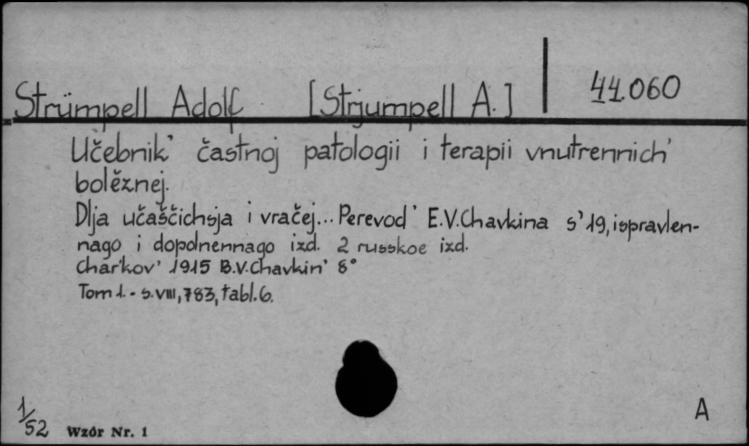 Strümpell Adolf [Strjumpell A.] 44.060
Učebnik' častnoj patologii i terapii vnutrennich'
bolěznej.
Dlja učaščichsja i vračej... Perevod' E.V.Chavkina s'19, ispravlen-
nago i dopolnennago izd. 2 russkoe izd.
Char'kov' 1915 B.V.Chavkin' 8°
Tom 1. - s.VIII, 783, tabl.6.
1/52 Wzór Nr. 1
A